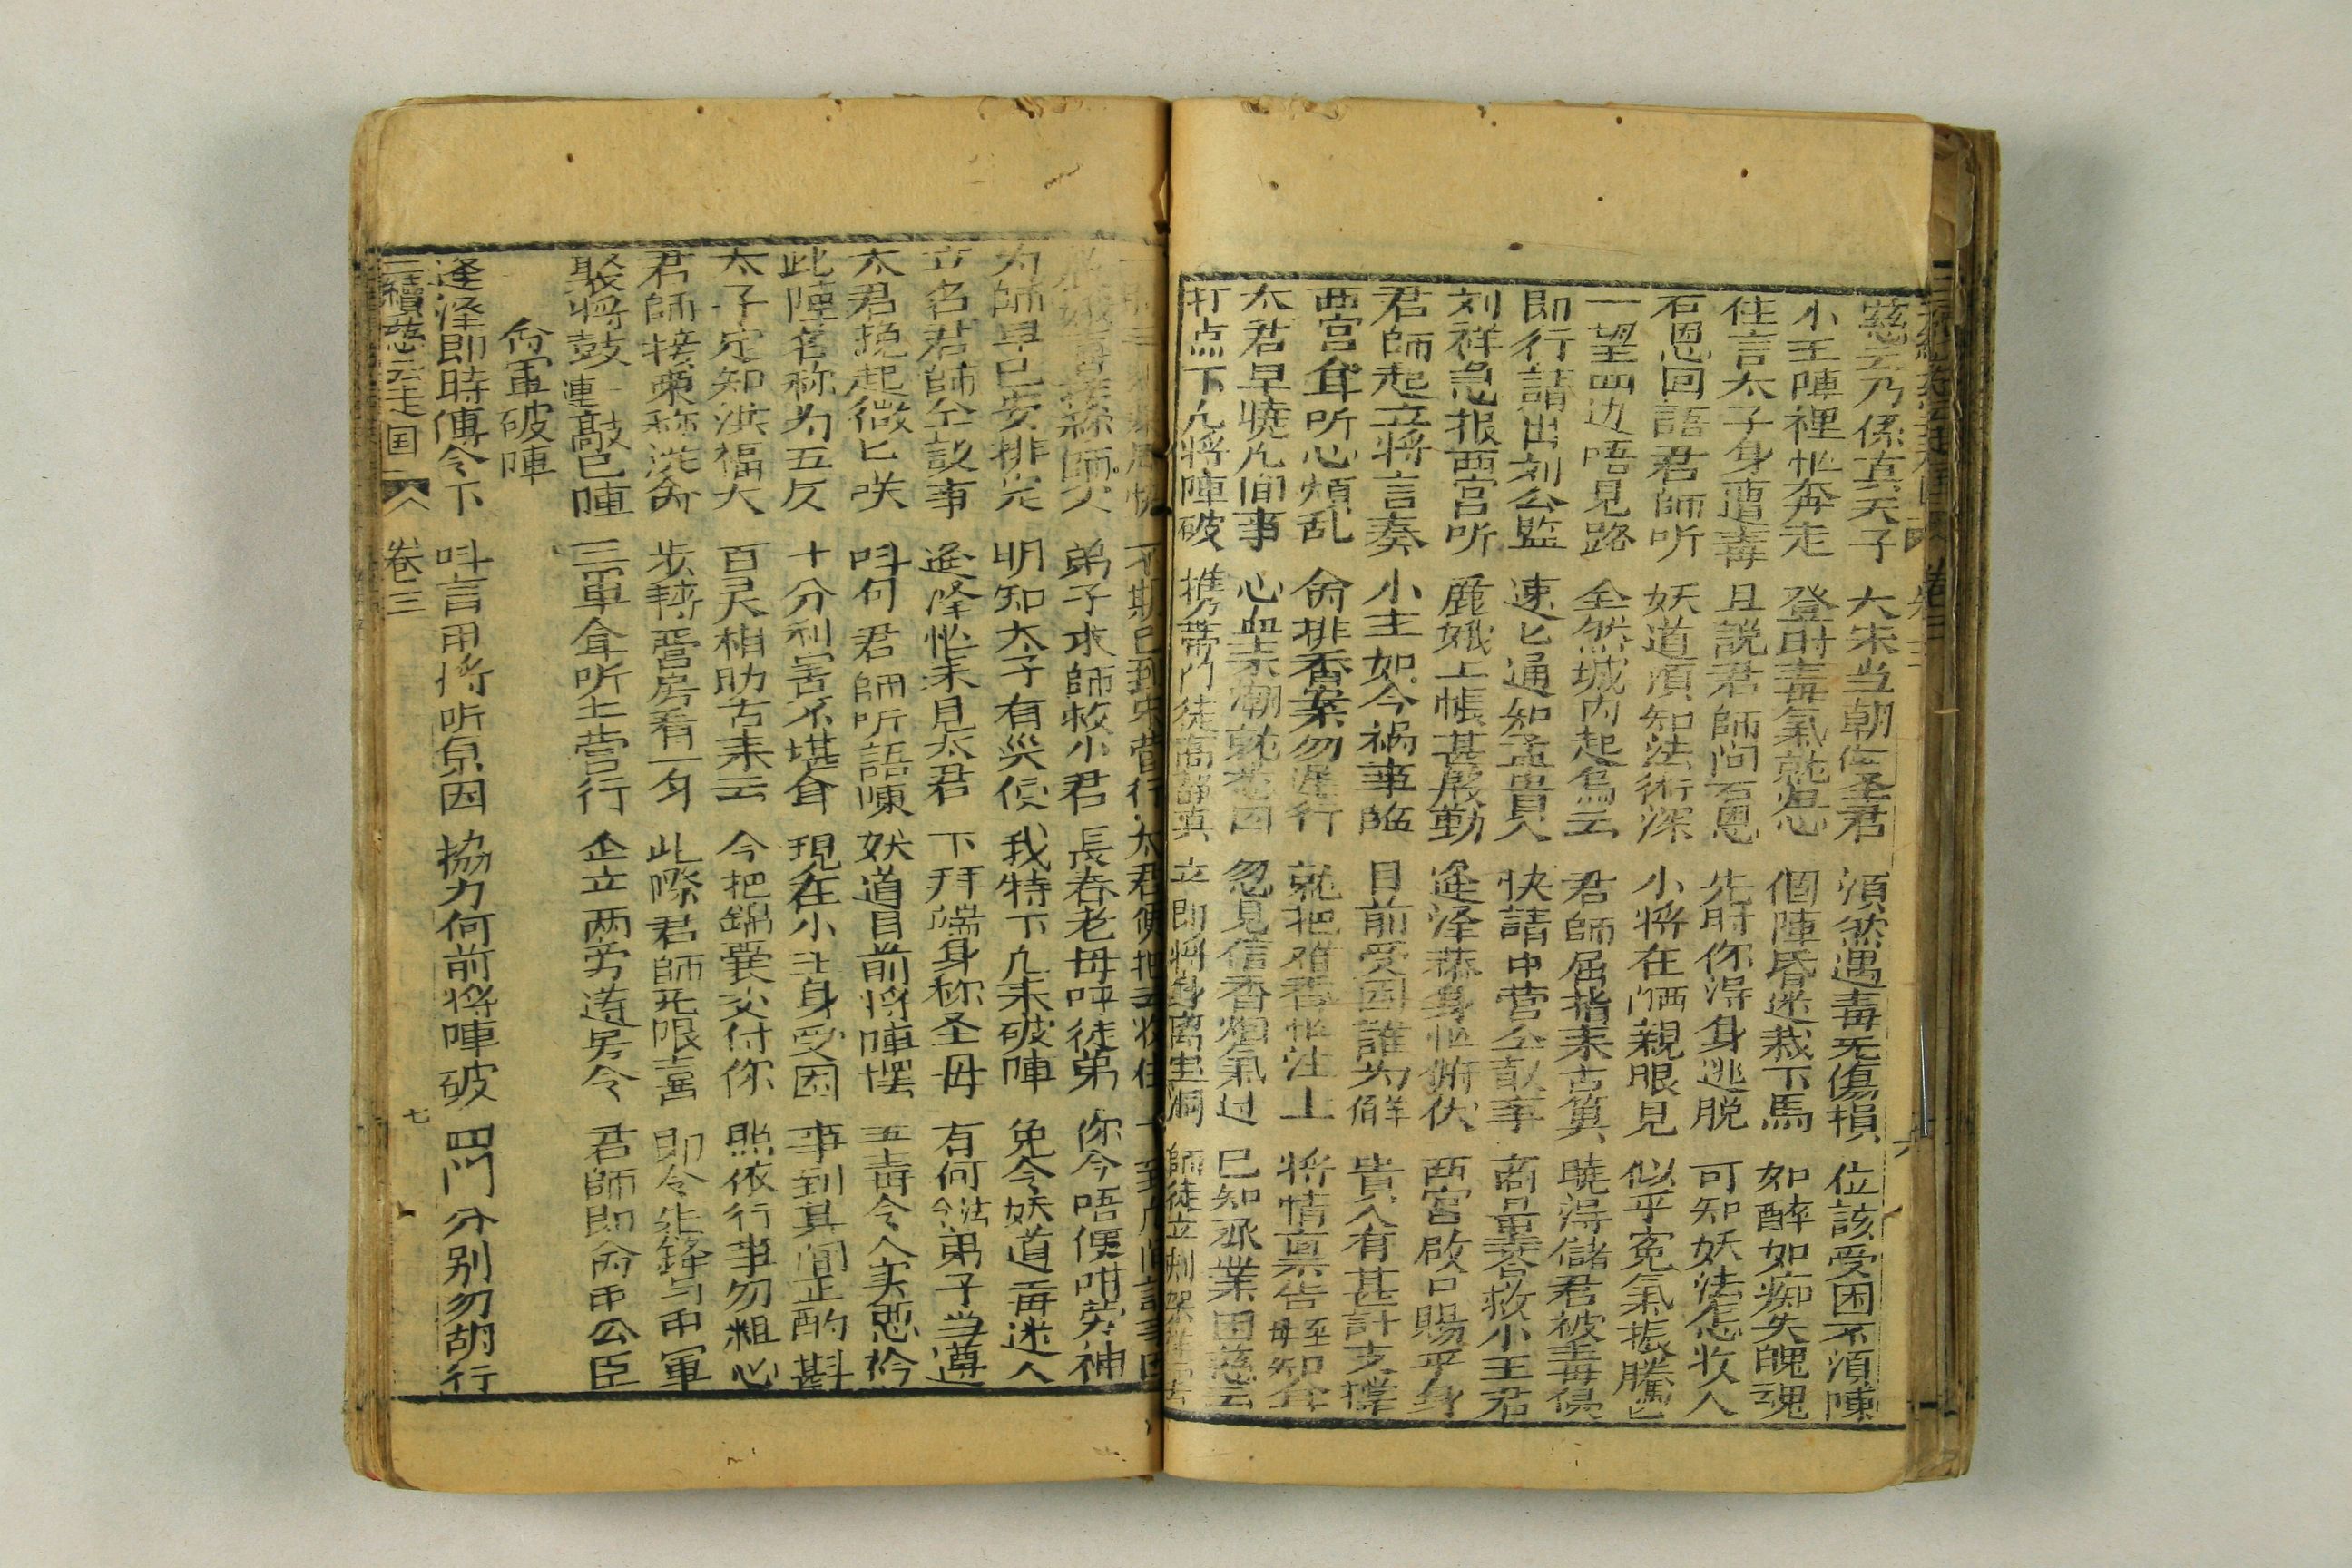 慈云乃係真天子 大宋当朝位圣君 須然遇毒无傷損 位該受困不須陳
小王陣裡忙奔走 登时毒氣就惺 個陣昏迷栽下馬 如醉如痴失魄魂
住言太子身遭毒 且說君師问石恩 先时你淂身逃脱 可知妖法怎收人
石恩回語君師听 妖道須知法術深 小将在陣親眼見 似乎寃氣振騰匕
一望四边唔見路 全然城内起烏云 君師屈指来占算 曉淂儲君被毒侵
即行請出刘公監 速匕通知孟貴人 快請中营仝敘事 商量要救小王君
刘祥急报西宫听 鹿娥上帳甚殷勤 逢泽恭身忙俯伏 西宫啟口賜平身
君師起立将言奏 小主如今禍事臨 目前受困誰为觧 貴人有甚計支撑
西宫耸听心煩乱 俞排香案勿遲行 就把难香忙注上 将情禀告聖母知
太君早曉凢间事 心血来潮就惹因 忽見信香烟氣过 已知丞業困慈云
打点下凢将陣破 携帶门徒高 真 立即将身离圭洞 師徒立刻架
弟子求師救小君 長春老母呼徒弟 你今唔使咁劳神
为師早已安排定 明知太子有災侵 我特下凢来破陣 免令妖道毒迷人
立名君師仝敘事 逢泽忙来見太君 下拜端身称圣母 有何法令弟子当遵
太君挽起微匕咲 呌何君師听語陳 妖道目前将陣摆 五毒令人实恶衿
此陣名称为五反 十分利害不堪耸 現在小主身受困 事到其间正酌斟
太子定知洪福大 百灵相助古来云 今把錦囊交付你 照依行事勿粗心
君師接柬称遵命 步轉营房看一匀 此際君師无限喜 即令先鋒与中軍
聚将鼓連敲已陣 三軍耸听上营行 企立两旁遵号令 君師即命甲公臣
命軍破陣
逢泽即時傳令下 呌言用将听原因 協力何前将陣破 四门分别勿胡行
三續慈云走国 卷三 七